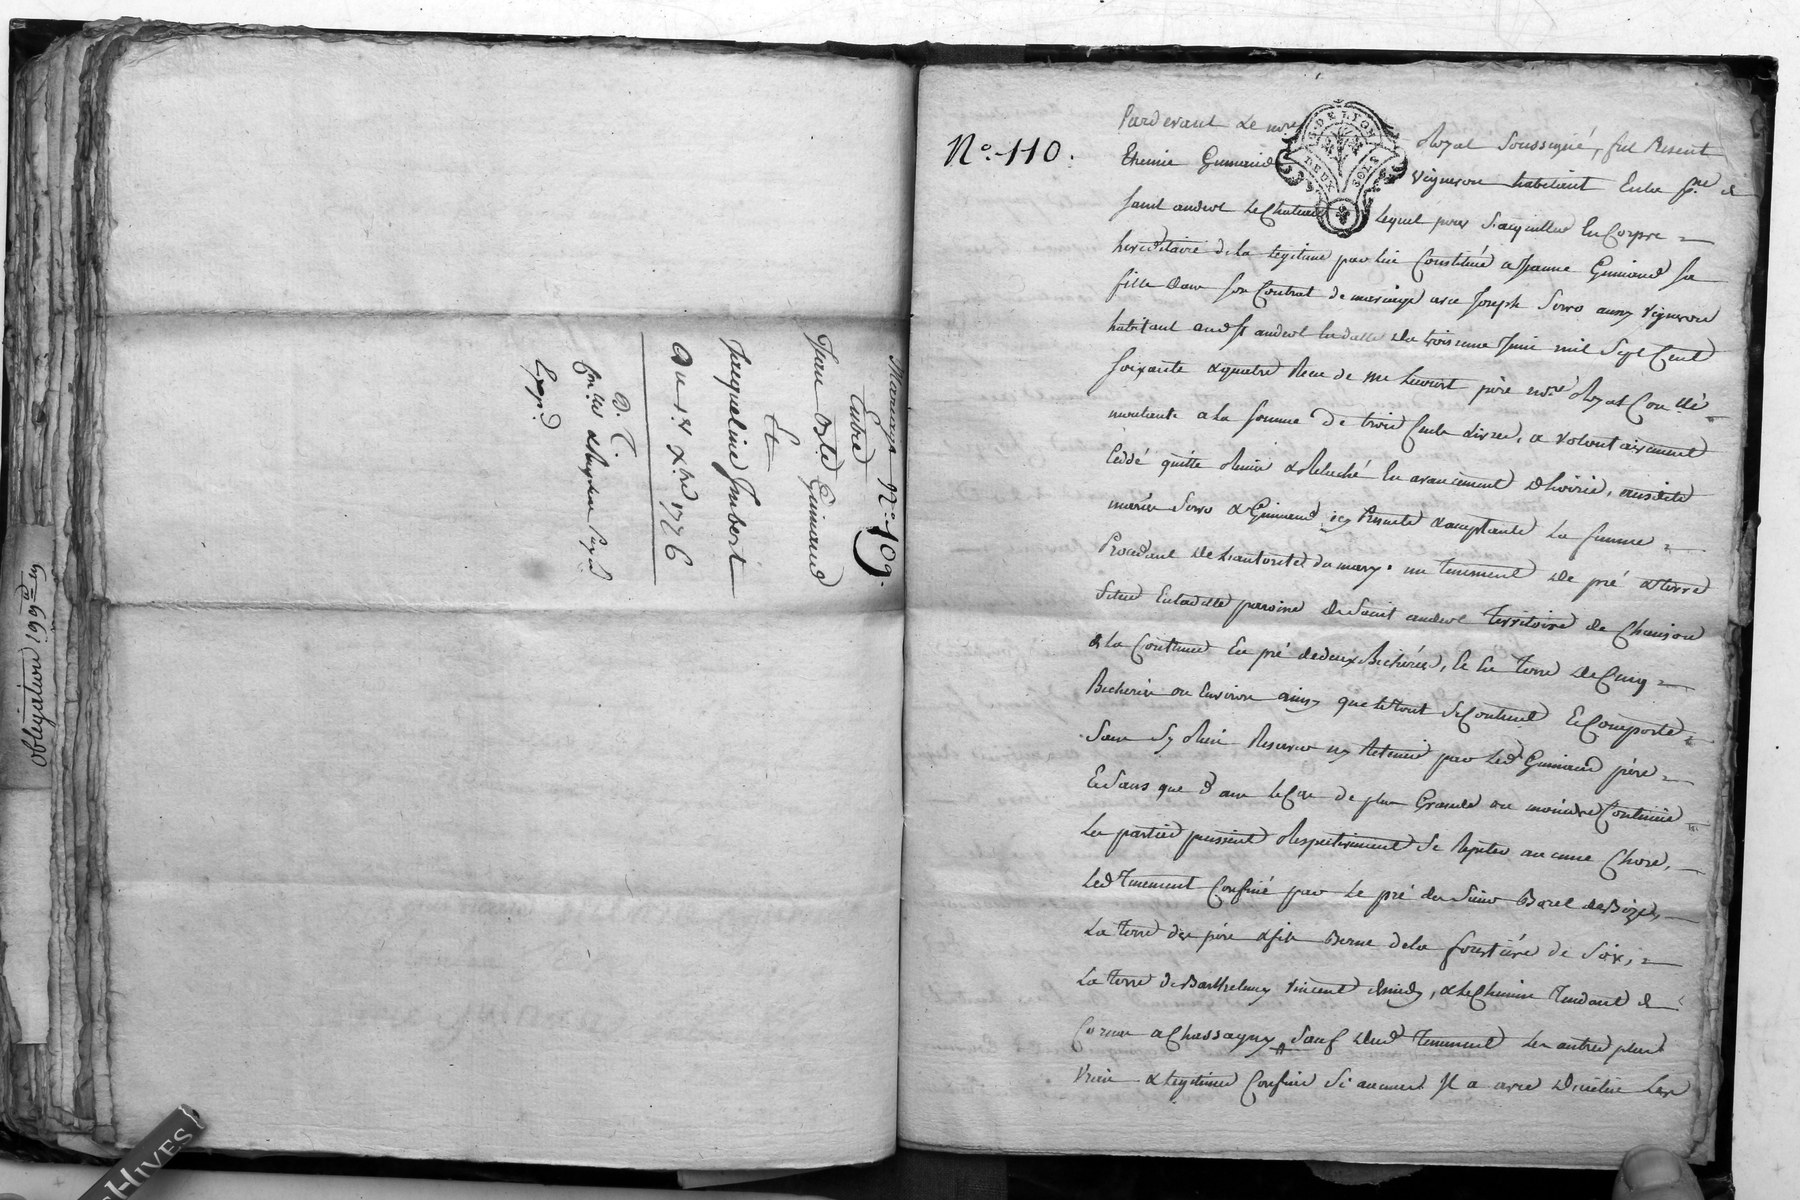 Obligation 199
Mariage N.º 109.
Entre
Jean Bte Guinand
Et
Jacqueline Jubert
Du 14 Xbre 1776
D. C.
Exp.d
N.º 110.
G. DE LYON
DEUX SOLS
Pardevant Le nore Royal Soussigné, fut Present
Etienne Guinand Vigneron habitant En la psse de
saint andeol Le Chateau Lequel pour S'acquitter En Corps =
hereditaire de la legitime par lui Constituée a Jeanne Guinand sa
fille dans son Contrat de mariage avec Joseph Serro aussy Vigneron
habitant aud St andeol En datte du troisieme Juin mil Sept Cent
soixante & quatre Recu de me père nore Royal
montante a la somme de trois Cents Livres, a volontairement
Ceddé quitté Remis & Relaché En avancement d'hoirie, auxdits
mariés Serro & Guinand icy Presents & acceptants La femme =
Procedant de L'autorité du mary. un tenement de pré & terre
Situé En ladite paroisse de Saint andeol Territoire de
& la Contenue En pré de deux Bicherées, & En Terre de Cinq =
Bicherées ou Environ ainsy que le tout Se Contient & Comporte =
Sans Sy Rien Reserver ny Retenir par Led Guinand père =
Et Sans que dans le Cas de plus Grande ou moindre Contenue =
Les parties puissent Respectivement Se Repeter aucune Chose, =
Led Tenement Confiné par Le pré du Sieur Borel
La terre des père & fils Berne de la de Soix, =
La terre de Barthelemy Vincent & Le Chemin Tendant de
a Chassagny Sauf dud Tenement Les autres plus
Vrais & Legitimes Confins Si aucuns Il a avec Du Les
ARCHIVES